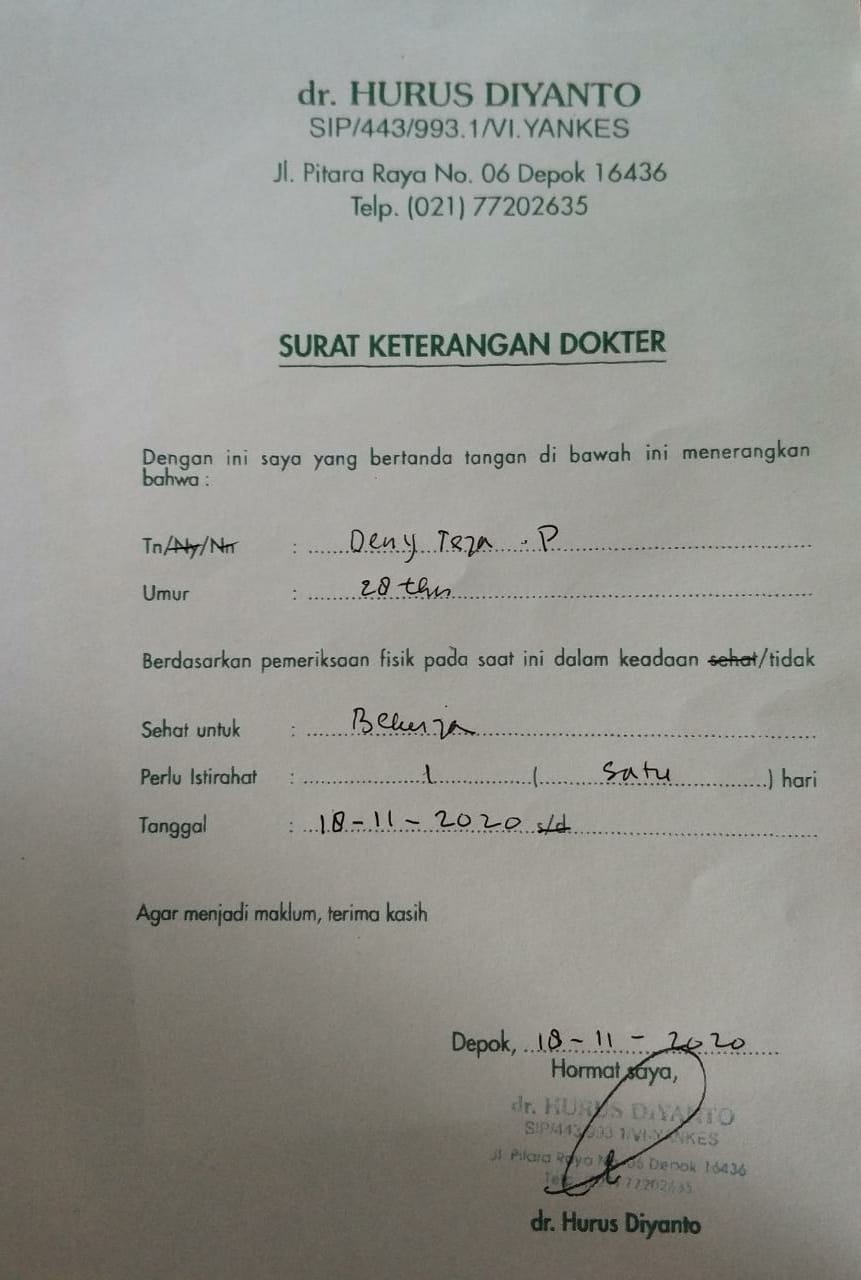 dr. HURUS DIYANTO
SIP/443/993.1/VI.YANKES
Jl. Pitara Raya No. 06 Depok 16436
Telp. (021) 77202635
SURAT KETERANGAN DOKTER
Dengan ini saya yang bertanda tangan di bawah ini menerangkan
bahwa :
Tn/Ny/Nn : Deny Teza . P
Umur : 28 thn
Berdasarkan pemeriksaan fisik pada saat ini dalam keadaan sehat/tidak
Sehat untuk : Bekerja
Perlu Istirahat : 1 ( satu ) hari
Tanggal : 18-11-2020 s/d
Agar menjadi maklum, terima kasih
Depok, 18-11-2020
Hormat saya,
dr. HURUS DIYANTO
SIP/443/993.1/VI-YANKES
Jl. Pitara Raya No. 06 Depok 16436
77202635
dr. Hurus Diyanto